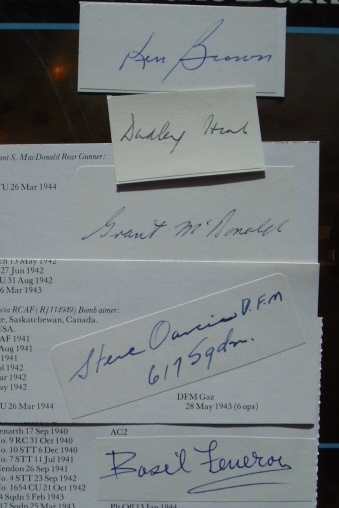 Ken Brown
Dudley Heal
ant S. MacDonald Rear Gunner:
TU 26 Mar 1944
Grant McDonald
ch 13 May 1942
27 Jun 1942
U 31 Aug 1942
6 Mar 1943
ncia RCAF (RJ114949) Bomb aimer:
ge, Saskatchewan, Canada.
USA.
AF 1941
Aug 1941
1941
ul 1942
ar 1942
ar 1942
ay 1942
Steve Oancia D.F.M
617 Sqdn.
TU 26 Mar 1944
DFM Gaz
28 May 1943 (6 ops)
enarth 17 Sep 1940
AC2
o. 9 RC 31 Oct 1940
o. 10 STT 6 Dec 1940
o. 7 STT 11 Jul 1941
endon 26 Sep 1941
o. 4 STT 23 Sep 1942
o. 1654 CU 21 Oct 1942
4 Sqdn 5 Feb 1943
17 Sqdn 25 Mar 1943
Plt Off 13 Jan 1944
Basil Feneron